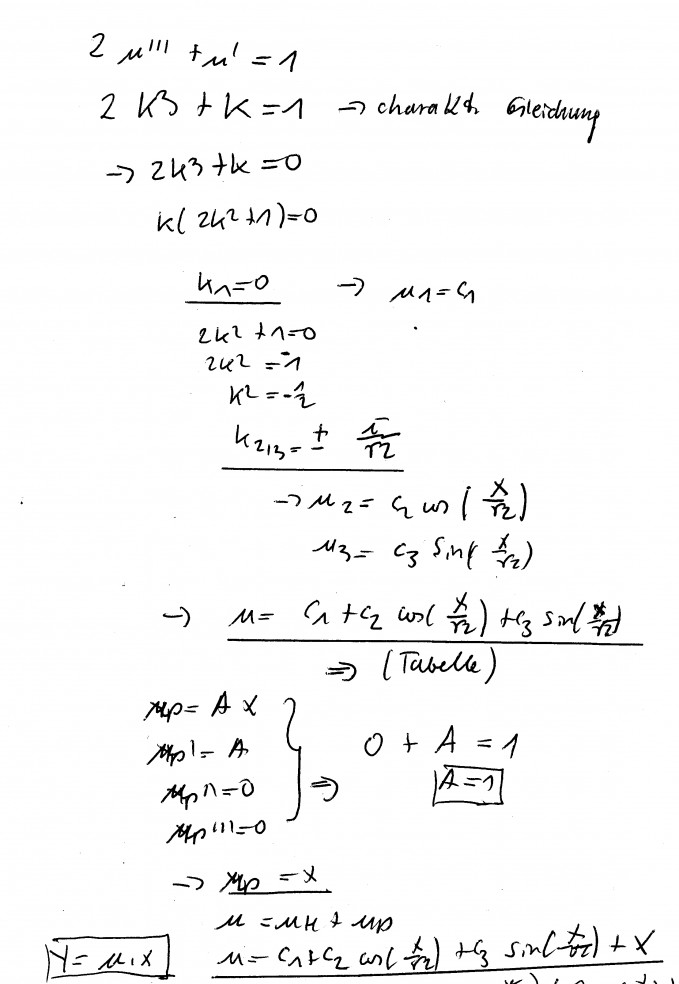 2 u''' + u' = 1
2 k3 + k = 1 → charakt. Gleichung
→ 2k3 + k = 0
k( 2k2 + 1) = 0
k1 = 0 → u1 = c1
2k2 + 1 = 0
2k2 = -1
k2 = -1/2
k2/3 = ± i/√2
→ u2 = c2 cos ( x/√2 )
u3 = c3 sin( x/√2 )
→ u = c1 + c2 cos( x/√2 ) + c3 sin( x/√2 )
⇒ (Tabelle)
up = A x
up' = A
up'' = 0
up''' = 0
⇒ 0 + A = 1
A = 1
→ up = x
u = uH + up
Y = u.x u = c1 + c2 cos( x/√2 ) + c3 sin( x/√2 ) + x